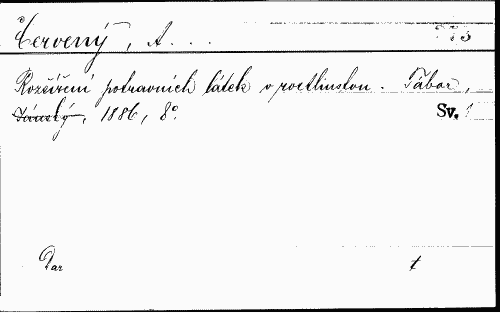 Červený, A. . . .
Rozšíření potravních látek v rostlinstvu. Tábor,
Jánský, 1886, 8°.
Sv. 1
Dar